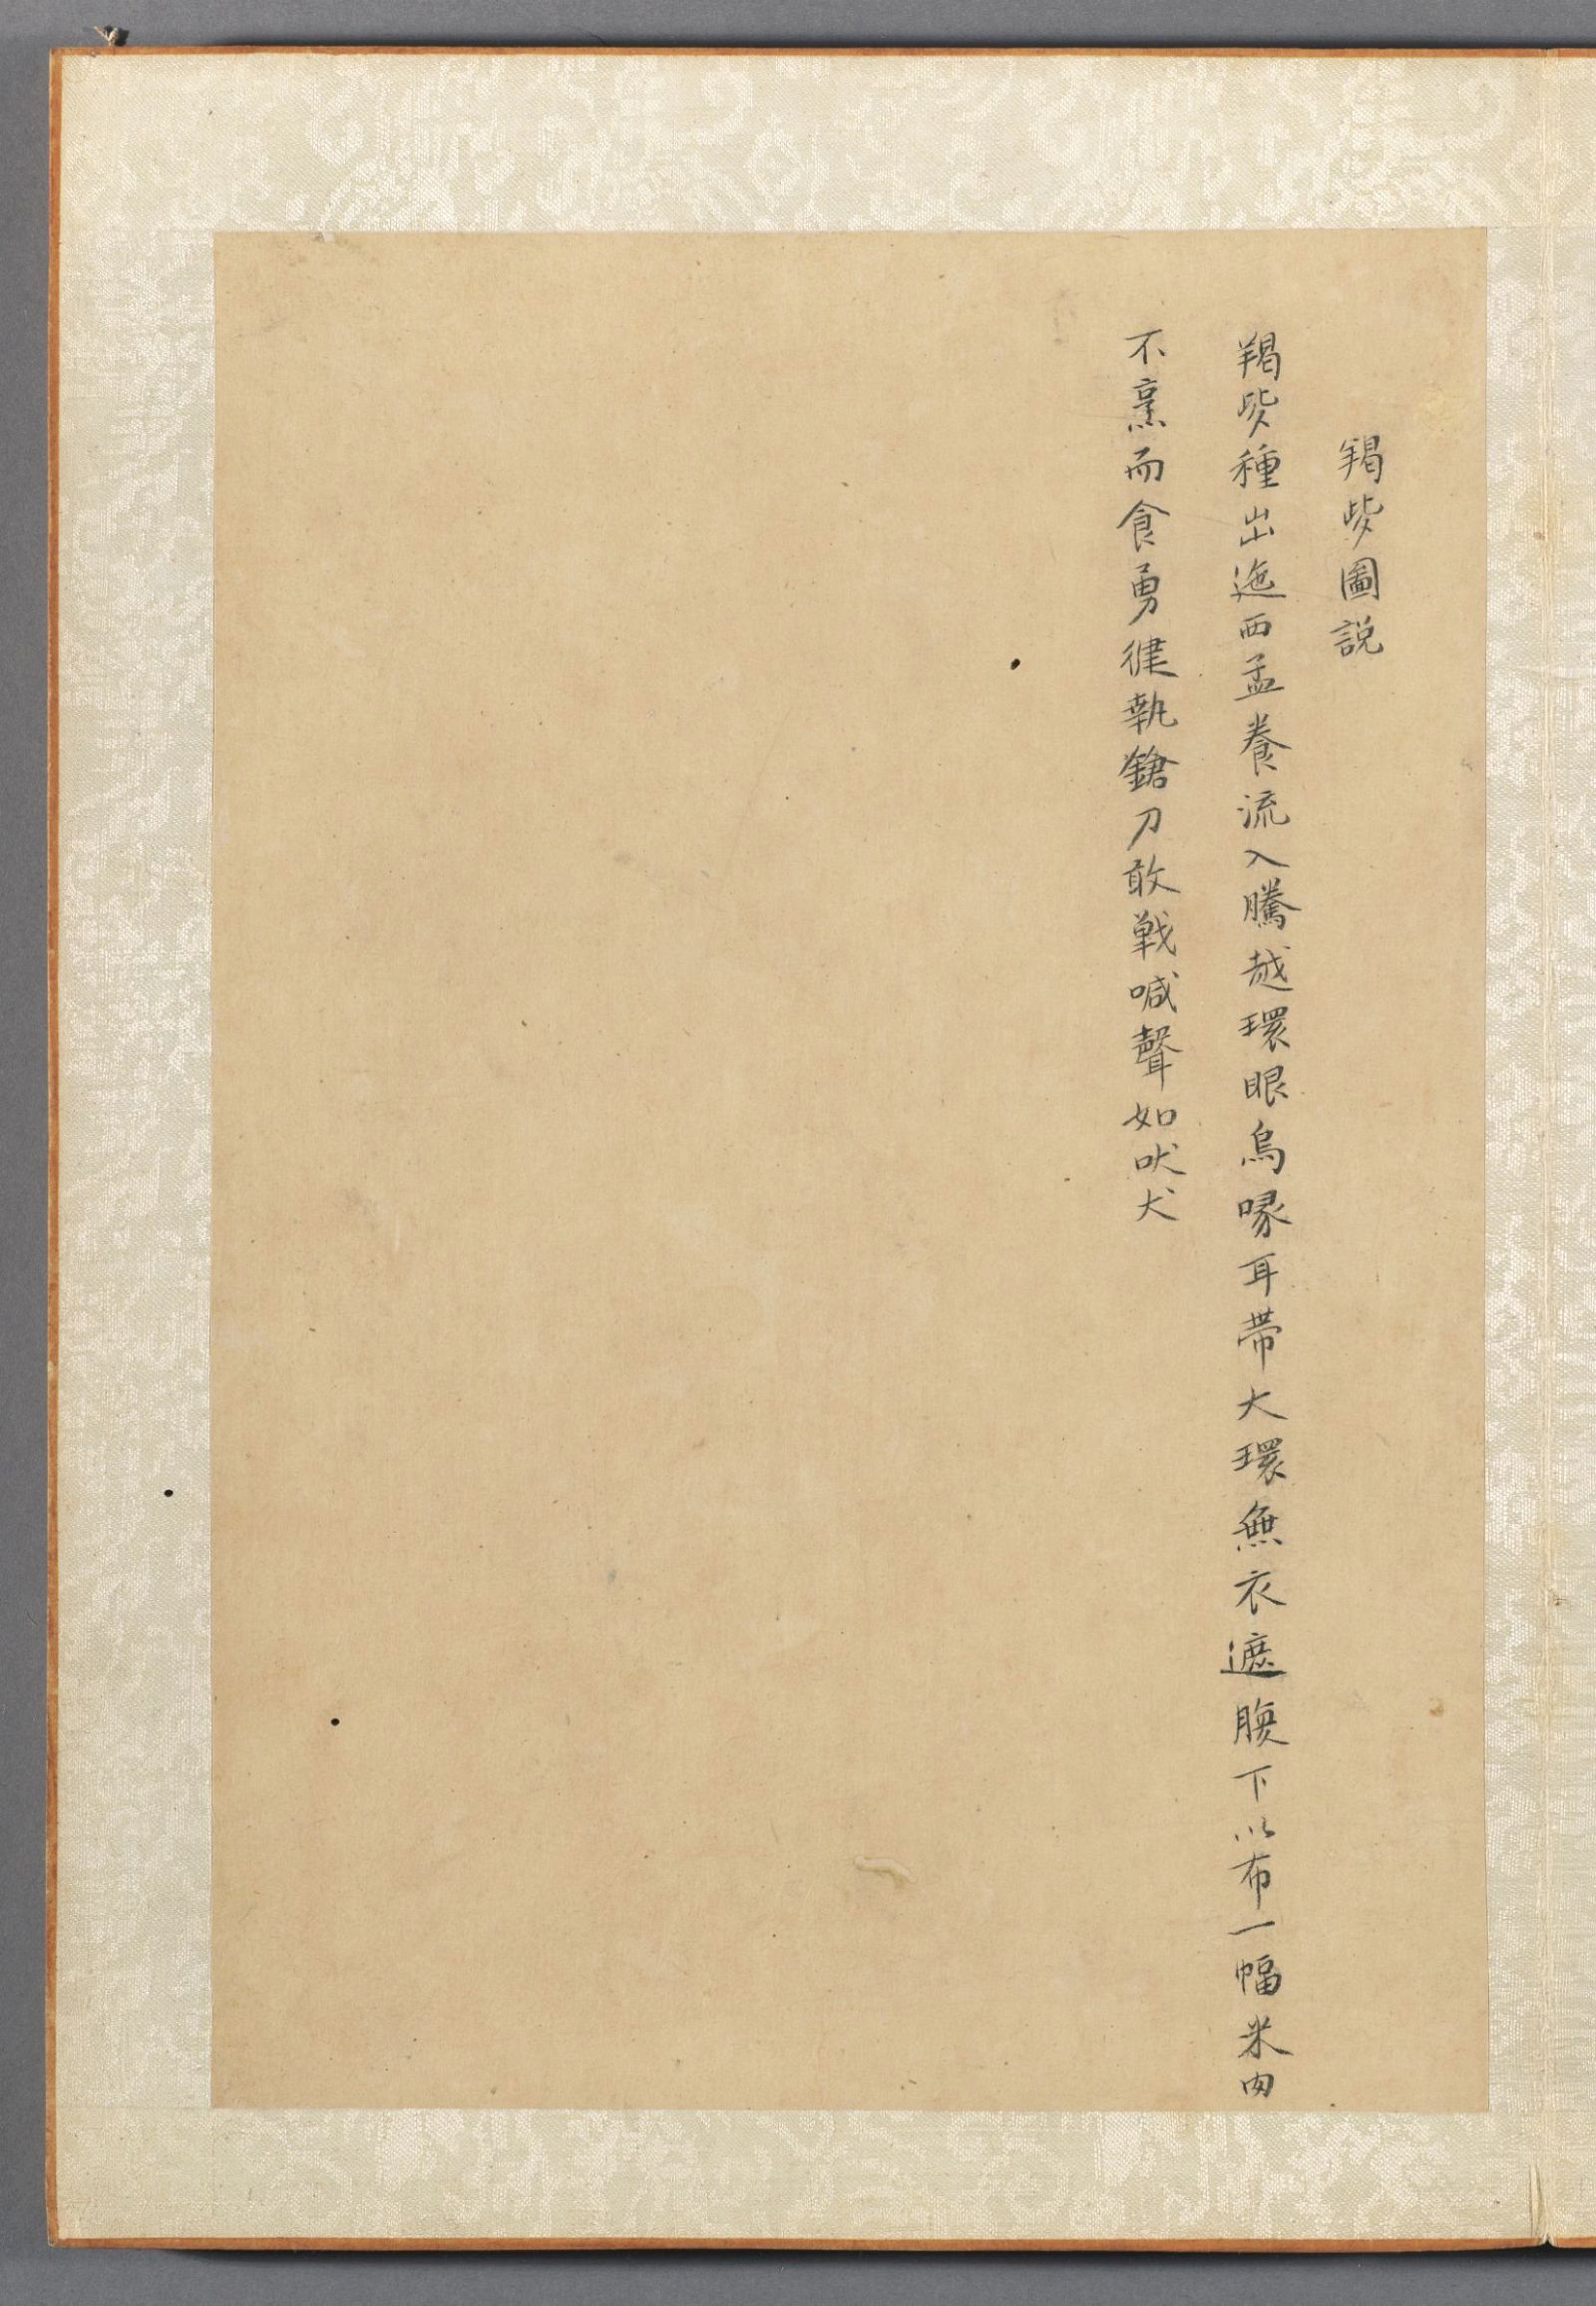 羯㱔圖說
羯㱔種出迤西孟養流入騰越環眼烏喙耳帶大環無衣遮腹下以布一幅米肉
不烹而食勇健執鎗刀敢戰喊聲如吠犬